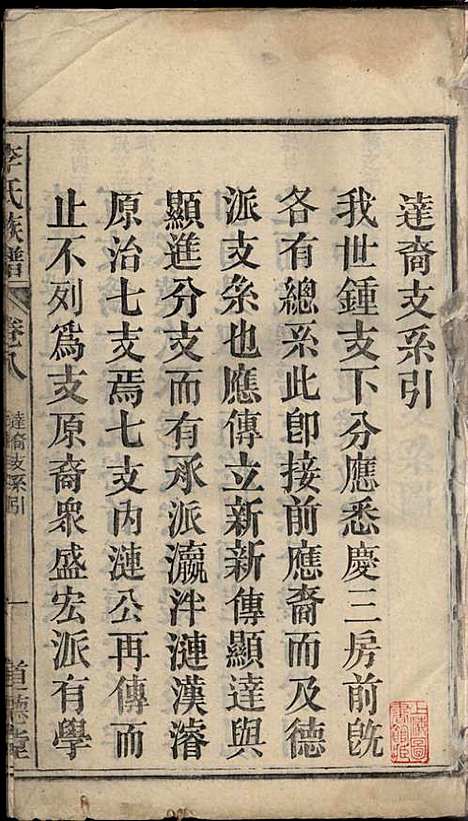 達裔支系引
我世鍾支下分應悉慶三房前旣
各有總系此即接前應裔而及德
派支系也應傳立新新傳顯達與
顯進分支而有承派瀛泮漣漢濬
原治七支焉七支內漣公再傳而
止不列爲支原裔眾盛宏派有學
李氏族譜
卷八
達裔支系引
一
道德堂